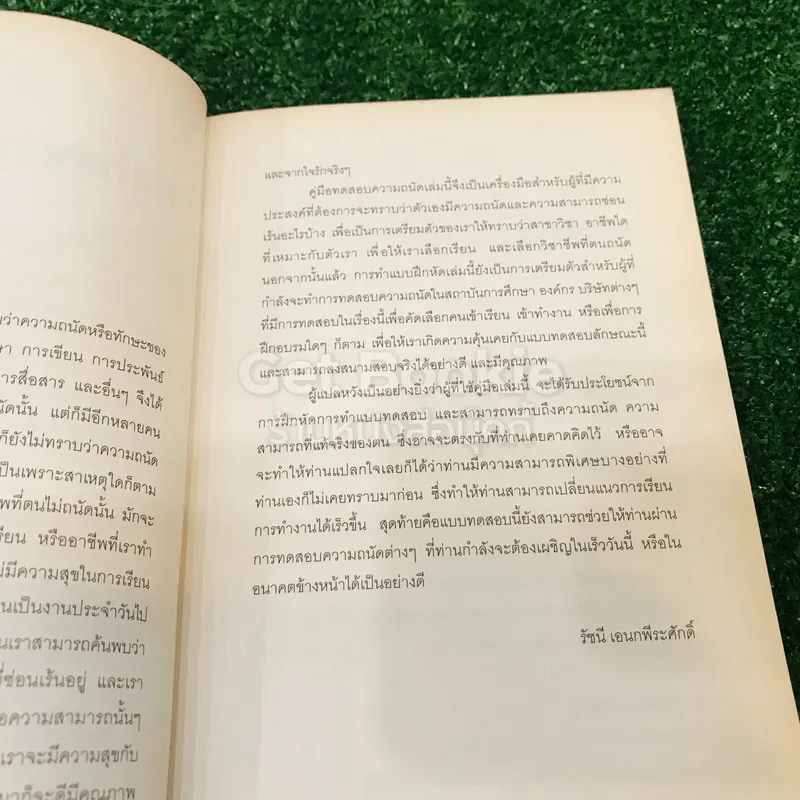 พว่าความถนัดหรือทักษะของ
ษา การเขียน การประพันธ์
การสื่อสาร และอื่นๆ จึงได้
นัดนั้น แต่ก็มีอีกหลายคน
ก็ยังไม่ทราบว่าความถนัด
เป็นเพราะสาเหตุใดก็ตาม
พที่ตนไม่ถนัดนั้น มักจะ
รียน หรืออาชีพที่เราทำ
ไม่มีความสุขในการเรียน
นเป็นงานประจำวันไป
นเราสามารถค้นพบว่า
ที่ซ่อนเร้นอยู่ และเรา
อความสามารถนั้นๆ
เราจะมีความสุขกับ
มาก็จะดีมีคุณภาพ
และจากใจรักจริงๆ
คู่มือทดสอบความถนัดเล่มนี้จึงเป็นเครื่องมือสำหรับผู้ที่มีความ
ประสงค์ที่ต้องการจะทราบว่าตัวเองมีความถนัดและความสามารถซ่อน
เร้นอะไรบ้าง เพื่อเป็นการเตรียมตัวของเราให้ทราบว่าสาขาวิชา อาชีพใด
ที่เหมาะกับตัวเรา เพื่อให้เราเลือกเรียน และเลือกวิชาชีพที่ตนถนัด
นอกจากนั้นแล้ว การทำแบบฝึกหัดเล่มนี้ยังเป็นการเตรียมตัวสำหรับผู้ที่
กำลังจะทำการทดสอบความถนัดในสถาบันการศึกษา องค์กร บริษัทต่างๆ
ที่มีการทดสอบในเรื่องนี้เพื่อคัดเลือกคนเข้าเรียน เข้าทำงาน หรือเพื่อการ
ฝึกอบรมใดๆ ก็ตาม เพื่อให้เราเกิดความคุ้นเคยกับแบบทดสอบลักษณะนี้
และสามารถลงสนามสอบจริงได้อย่างดี และมีคุณภาพ
ผู้แปลหวังเป็นอย่างยิ่งว่าผู้ที่ใช้คู่มือเล่มนี้ จะได้รับประโยชน์จาก
การฝึกหัดการทำแบบทดสอบ และสามารถทราบถึงความถนัด ความ
สามารถที่แท้จริงของตน ซึ่งอาจจะตรงกับที่ท่านเคยคาดคิดไว้ หรืออาจ
จะทำให้ท่านแปลกใจเลยก็ได้ว่าท่านมีความสามารถพิเศษบางอย่างที่
ท่านเองก็ไม่เคยทราบมาก่อน ซึ่งทำให้ท่านสามารถเปลี่ยนแนวการเรียน
การทำงานได้เร็วขึ้น สุดท้ายคือแบบทดสอบนี้ยังสามารถช่วยให้ท่านผ่าน
การทดสอบความถนัดต่างๆ ที่ท่านกำลังจะต้องเผชิญในเร็ววันนี้ หรือใน
อนาคตข้างหน้าได้เป็นอย่างดี
รัชนี เอนกพีระศักดิ์
Get Bookie
ร้านหนังสือเก็ต